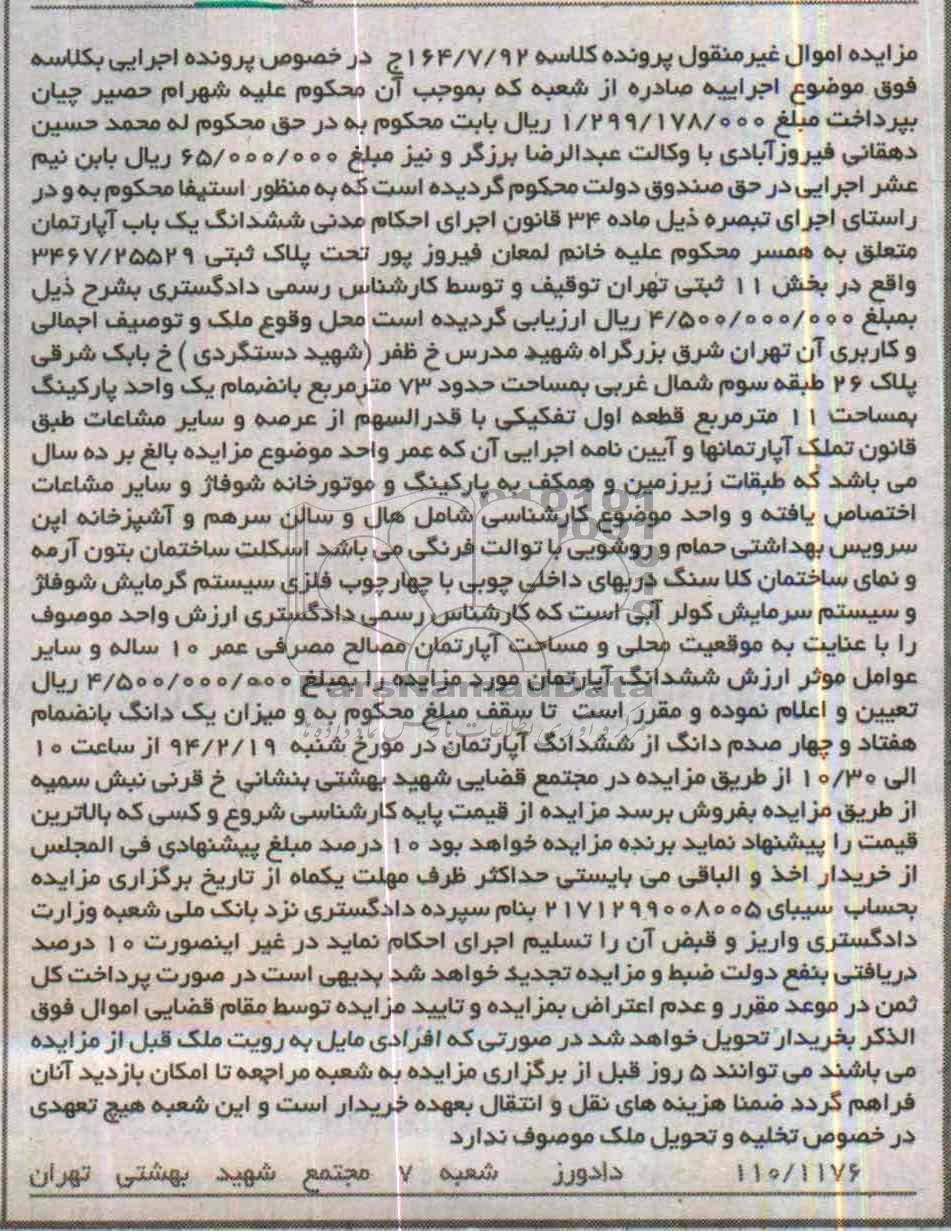 مزایده اموال غیرمنقول پرونده کلاسه ۱۶۴/۷/۹۲ج در خصوص پرونده اجرایی بکلاسه
فوق موضوع اجراییه صادره از شعبه که بموجب آن محکوم علیه شهرام حصیر چیان
بپرداخت مبلغ ۱/۲۹۹/۱۷۸/۰۰۰ ریال بابت محکوم به در حق محکوم له محمد حسین
دهقانی فیروزآبادی با وکالت عبدالرضا برزگر و نیز مبلغ ۶۵/۰۰۰/۰۰۰ ریال بابن نیم
عشر اجرایی در حق صندوق دولت محکوم گردیده است که به منظور استیفا محکوم به و در
راستای اجرای تبصره ذیل ماده ۳۴ قانون اجرای احکام مدنی ششدانگ یک باب آپارتمان
متعلق به همسر محکوم علیه خانم لمعان فیروز پور تحت پلاک ثبتی ۳۴۶۷/۲۵۵۲۹
واقع در بخش ۱۱ ثبتی تهران توقیف و توسط کارشناس رسمی دادگستری بشرح ذیل
بمبلغ ۴/۵۰۰/۰۰۰/۰۰۰ ریال ارزیابی گردیده است محل وقوع ملک و توصیف اجمالی
و کاربری آن تهران شرق بزرگراه شهید مدرس خ ظفر (شهید دستگردی ) خ بابک شرقی
پلاک ۲۶ طبقه سوم شمال غربی بمساحت حدود ۷۳ مترمربع بانضمام یک واحد پارکینگ
بمساحت ۱۱ مترمربع قطعه اول تفکیکی با قدرالسهم از عرصه و سایر مشاعات طبق
قانون تملک آپارتمانها و آیین نامه اجرایی آن که عمر واحد موضوع مزایده بالغ بر ده سال
می باشد که طبقات زیرزمین و همکف به پارکینگ و موتورخانه شوفاژ و سایر مشاعات
اختصاص یافته و واحد موضوع کارشناسی شامل هال و سالن سرهم و آشپزخانه اپن
سرویس بهداشتی حمام و روشویی با توالت فرنگی می باشد اسکلت ساختمان بتون آرمه
و نمای ساختمان کلا سنگ دربهای داخلی چوبی با چهارچوب فلزی سیستم گرمایش شوفاژ
و سیستم سرمایش کولر آبی است که کارشناس رسمی دادگستری ارزش واحد موصوف
را با عنایت به موقعیت محلی و مساحت آپارتمان مصالح مصرفی عمر ۱۰ ساله و سایر
عوامل موثر ارزش ششدانگ آپارتمان مورد مزایده را بمبلغ ۴/۵۰۰/۰۰۰/۰۰۰ ریال
ParsNamadData
تعیین و اعلام نموده و مقرر است تا سقف مبلغ محکوم به و میزان یک دانگ بانضمام
هفتاد و چهار صدم دانگ از ششدانگ آپارتمان در مورخ شنبه ۹۴/۲/۱۹ از ساعت ۱۰
الی ۱۰/۳۰ از طریق مزایده در مجتمع قضایی شهید بهشتی بنشانی خ قرنی نبش سمیه
از طریق مزایده بفروش برسد مزایده از قیمت پایه کارشناسی شروع و کسی که بالاترین
قیمت را پیشنهاد نماید برنده مزایده خواهد بود ۱۰ درصد مبلغ پیشنهادی فی المجلس
از خریدار اخذ و الباقی می بایستی حداکثر ظرف مهلت یکماه از تاریخ برگزاری مزایده
بحساب سیبای ۲۱۷۱۲۹۹۰۰۸۰۰۵ بنام سپرده دادگستری نزد بانک ملی شعبه وزارت
دادگستری واریز و قبض آن را تسلیم اجرای احکام نماید در غیر اینصورت ۱۰ درصد
دریافتی بنفع دولت ضبط و مزایده تجدید خواهد شد بدیهی است در صورت پرداخت کل
ثمن در موعد مقرر و عدم اعتراض بمزایده و تایید مزایده توسط مقام قضایی اموال فوق
الذکر بخریدار تحویل خواهد شد در صورتی که افرادی مایل به رویت ملک قبل از مزایده
می باشند می توانند ۵ روز قبل از برگزاری مزایده به شعبه مراجعه تا امکان بازدید آنان
فراهم گردد ضمنا هزینه های نقل و انتقال بعهده خریدار است و این شعبه هیچ تعهدی
در خصوص تخلیه و تحویل ملک موصوف ندارد
۱۱۰/۱۱۷۶ دادورز شعبه ۷ مجتمع شهید بهشتی تهران